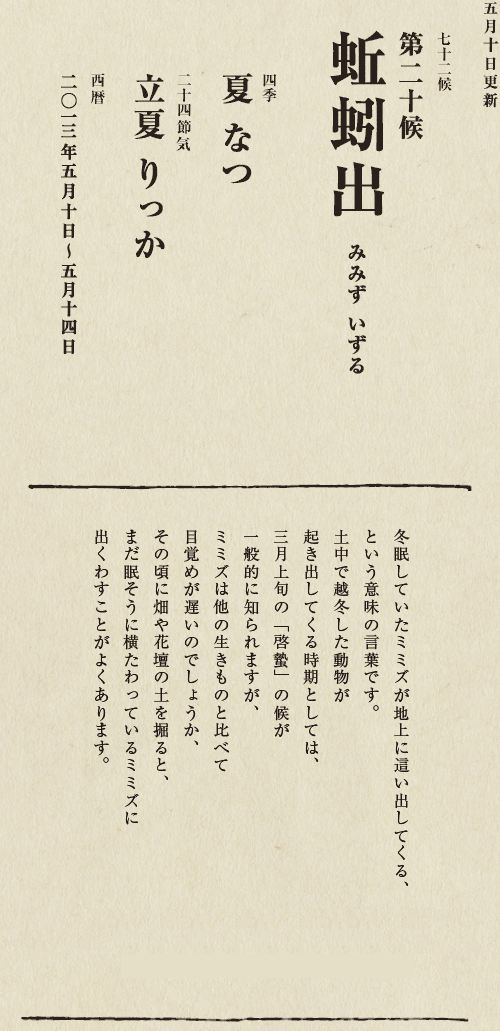 五月十日更新
七十二候
第二十候
蚯蚓出 みみず いずる
四季
夏 なつ
二十四節気
立夏 りっか
西暦
二〇一三年五月十日～五月十四日
冬眠していたミミズが地上に這い出してくる、
という意味の言葉です。
土中で越冬した動物が
起き出してくる時期としては、
三月上旬の「啓蟄」の候が
一般的に知られますが、
ミミズは他の生きものと比べて
目覚めが遅いのでしょうか、
その頃に畑や花壇の土を掘ると、
まだ眠そうに横たわっているミミズに
出くわすことがよくあります。